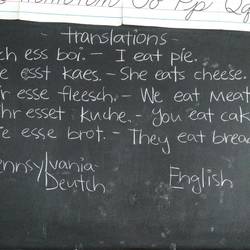 Oo Pp Qq
- translations -
ch ess boi. - I eat pie.
e esst kaes. - She eats cheese.
r esse fleesch. - We eat Meat
hr esset kuche. - You eat cak
e esse brot. - They eat bread
ennsylvania Deutch
English